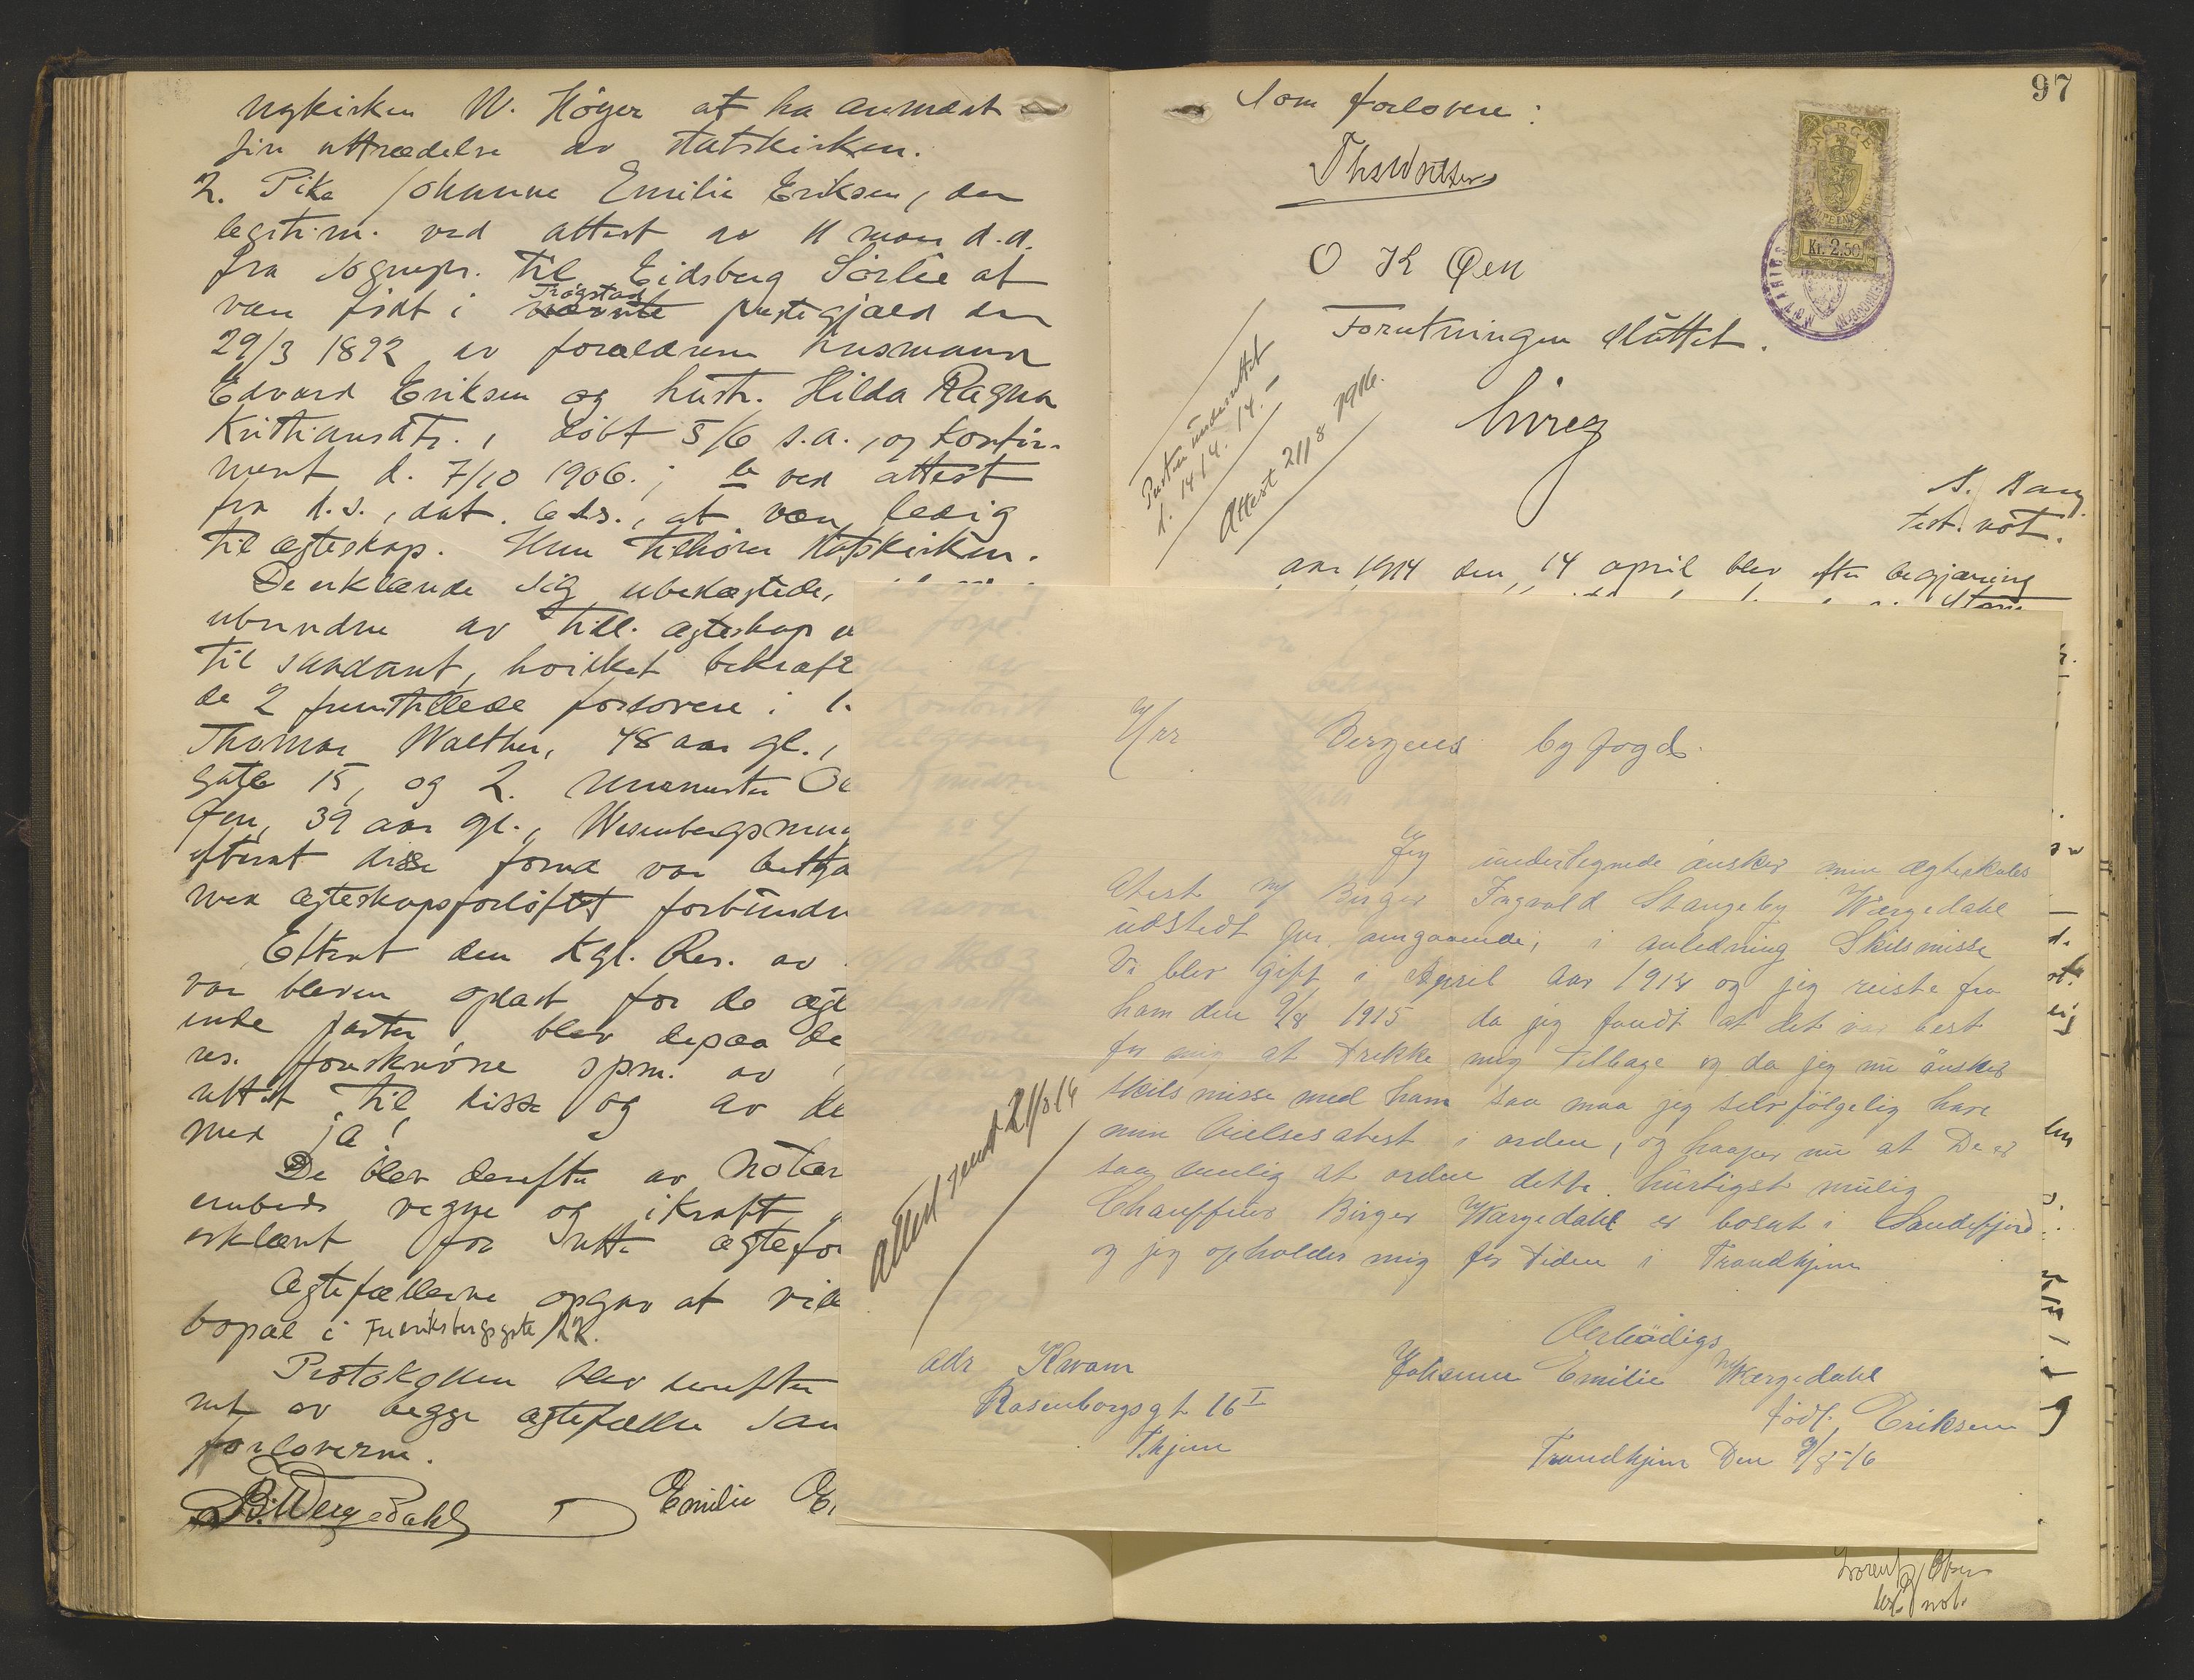 nykirken W. Höyer at ha anmeldt
sin uttrædelse av statskirken.
2. Pike Johanne Emilie Eriksen, der
legitim. ved attest av 11 mars d.a.
fra sognepr. til Eidsberg Sörlie at
være födt i Trøgstad prestegjæld den
29/3 1892 av forældrene husmann
Edvard Eriksen og hustr. Hilda Ragna
Kristiansdtr., döbt 5/6 s.a., og konfir-
mert d. 7/10 1906.; b ved attest
fra d.s., dat. ads., at være ledig
til ægteskap. Hun tilhörer statskirken.
De erklærede sig ubeslægtede,
ubundne av tidl. ægteskap
til saadant, hvilket bekræft
de 2 fremstillede forlovere: 1.
Thomas Walther, 48 aar gl.,
gate 15, og 2. murmester
Øen, 39 aar gl., Wesenbergsmu
efterat disse forud var
med ægteskapsforlöftet forbundne
Efterat den Kgl. Res. av
var bleven oplæst for de
inde parter, blev depaa de
res. foreskrevne spm. av
rettet til disse og av de
med ja!
De blev derefter av notar
embeds vegne og ikraft
erklært for rette ægtefo
Ægtefællerne opgav at ville
bopæl i Fredriksbergsgate 22.
Protokollen blev derefter
net av begge ægtefæller sam
forloverne.
B. Wergedahl Emilie E
97
Som forlovere:
Ths Walther
O K Øen
NORGE
Kr. 2.50
Forretningen sluttet.
Attest 21/8 1916.
d. 14/4. 14.
test. not.
Aar 1914 den 14 april blev efter begjæring
Hr Bergens byfogd.
Jeg undertegnede önsker min ægteskabs
Atest m/ Birger Ingvald Stangeby Wærgedahl
udstedt pr. omgaaende, i anledning Skilsmisse
Vi blev gift i April Aar 1914 og jeg reiste fra
ham den 9/8 1915 da jeg fandt at det var best
for mig at trekke mig tilbage og da jeg nu önsker
skilsmisse med ham saa maa jeg selvfölgelig have
min Vielsesatest i orden, og haaper nu at De er
saa venlig at ordne dette hurtigst mulig
Chauffeur Birger Wærgedahl er bosat i Sandefjord
og jeg opholder mig for tiden i Trondhjem
Attest sendt 21/8 16
Ærbödigs
Johanne Emilie Wærgedahl
född. Eriksen
Trondhjem Den 9/8-16
Adr Kvam
Rosenborgsgt 16 I
Thjem
Lorentz
not.